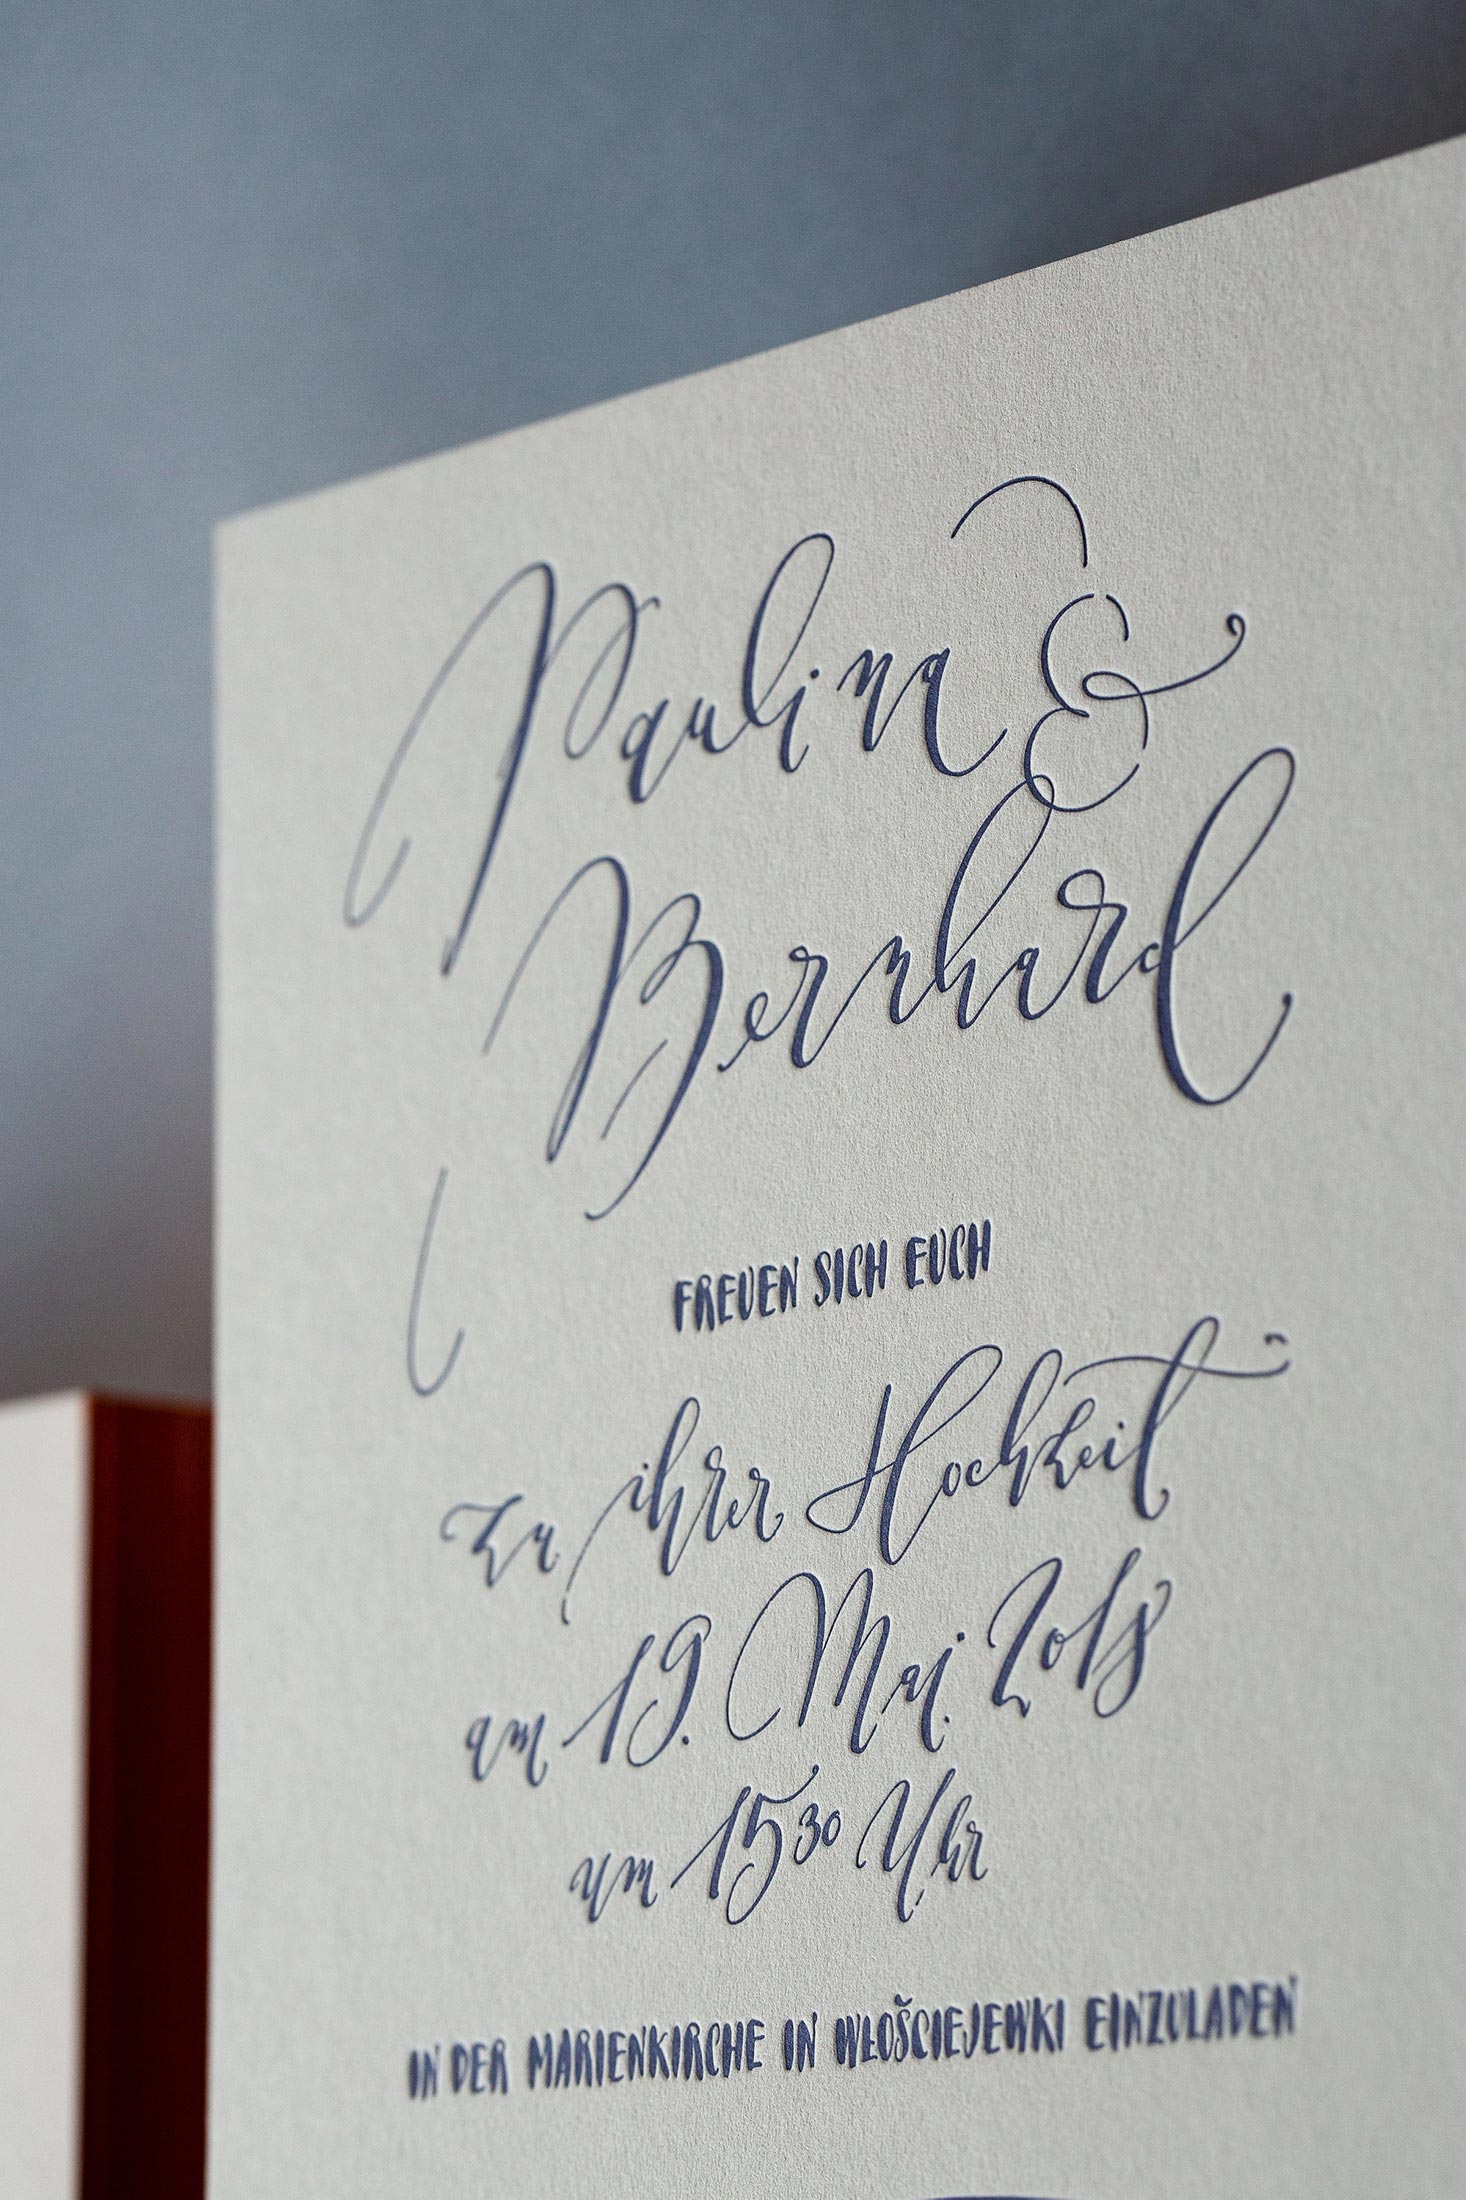 Paulina &
Bernhard
FREUEN SICH EUCH
Zu ihrer Hochzeit
am 19. Mai. 2018
um 15³⁰ Uhr
IN DER MARIENKIRCHE IN WŁOŠCIEJEWKI EINZULADEN